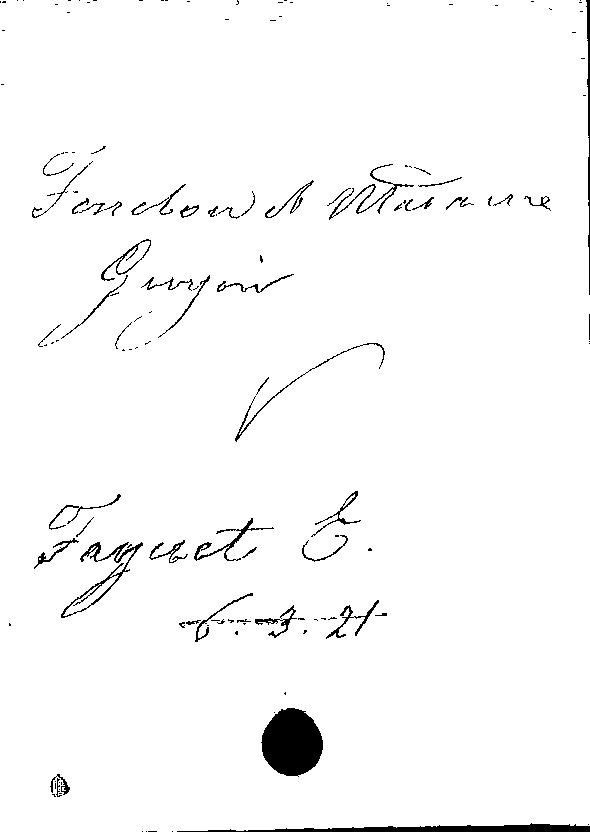 Fenelon et Madame
Guyon
Faguet E.
6.3.21